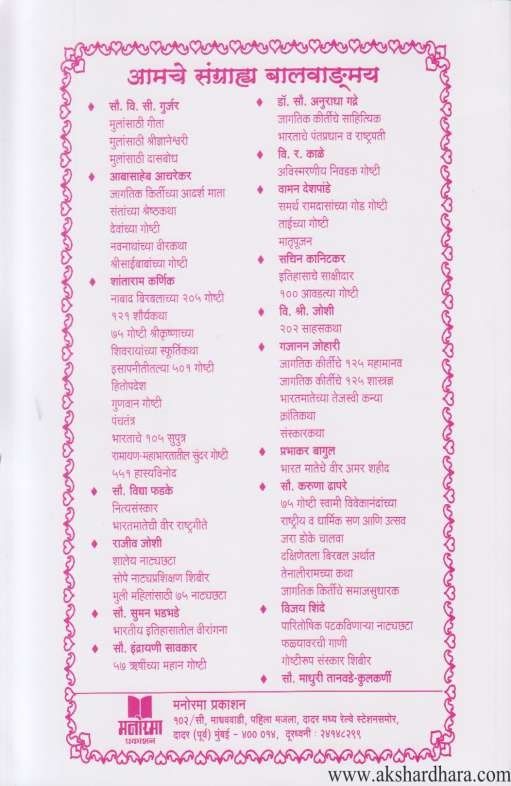 आमचे संग्राह्य बालवाङ्मय
♦ सौ. वि. सी. गुर्जर
मुलांसाठी गीता
मुलांसाठी श्रीज्ञानेश्वरी
मुलांसाठी दासबोध
♦ आबासाहेब आचरेकर
जागतिक किर्तीच्या आदर्श माला
संतांच्या श्रेष्ठकथा
देवांच्या गोष्टी
नवनाथांच्या वीरकथा
श्रीसाईबाबांच्या गोष्टी
♦ शांताराम कर्णिक
नाबाद बिरबलाच्या २०५ गोष्टी
१२१ शौर्यकथा
७५ गोष्टी श्रीकृष्णाच्या
शिवरायांच्या स्फूर्तिकथा
इसापनीतीतल्या ५०१ गोष्टी
हितोपदेश
गुणवान गोष्टी
पंचतंत्र
भारताचे १०५ सुपुत्र
रामायण-महाभारतातील सुंदर गोष्टी
५५१ हास्यविनोद
♦ सौ. विद्या फडके
नित्यसंस्कार
भारतमातेची वीर राष्ट्रगीते
♦ राजीव जोशी
शालेय नाट्यछटा
सोपे नाट्यप्रशिक्षण शिबीर
मुली महिलांसाठी ७५ नाट्यछटा
♦ सौ. सुमन भडभडे
भारतीय इतिहासातील वीरांगना
♦ सौ. इंद्रायणी सावकार
५७ ऋषींच्या महान गोष्टी
♦ डॉ. सौ. अनुराधा गद्रे
जागतिक कीर्तीचे साहित्यिक
भारताचे पंतप्रधान व राष्ट्रपती
♦ वि. र. काळे
अविस्मरणीय निवडक गोष्टी
♦ वामन देशपांडे
समर्थ रामदासांच्या गोड गोष्टी
ताईच्या गोष्टी
मातृपूजन
♦ सचिन कानिटकर
इतिहासाचे साक्षीदार
१०० आवडत्या गोष्टी
♦ वि. श्री. जोशी
२०२ साहसकथा
♦ गजानन जोहारी
जागतिक कीर्तीचे १२५ महामानव
जागतिक कीर्तीचे १२५ शास्त्रज्ञ
भारतमातेच्या तेजस्वी कन्या
क्रांतिकथा
संस्कारकथा
♦ प्रभाकर बागुल
भारत मातेचे वीर अमर शहीद
♦ सौ. करुणा ढापरे
७५ गोष्टी स्वामी विवेकानंदांच्या
राष्ट्रीय व धार्मिक सण आणि उत्सव
जरा डोके चालवा
दक्षिणेतला बिरबल अर्थात
तेनालीरामच्या कथा
जागतिक किर्तीचे समाजसुधारक
♦ विजय शिंदे
पारितोषिक पटकविणाऱ्या नाट्यछटा
फळ्यावरची गाणी
गोष्टीरूप संस्कार शिबीर
♦ सौ. माधुरी तानवडे-कुलकर्णी
मनोरमा
प्रकाशन
मनोरमा प्रकाशन
१०२/सी, माधववाडी, पहिला मजला, दादर मध्य रेल्वे स्टेशनसमोर,
दादर (पूर्व) मुंबई - ४०० ०१४. दूरध्वनी : २४१४८२९९
www.akshardhara.com